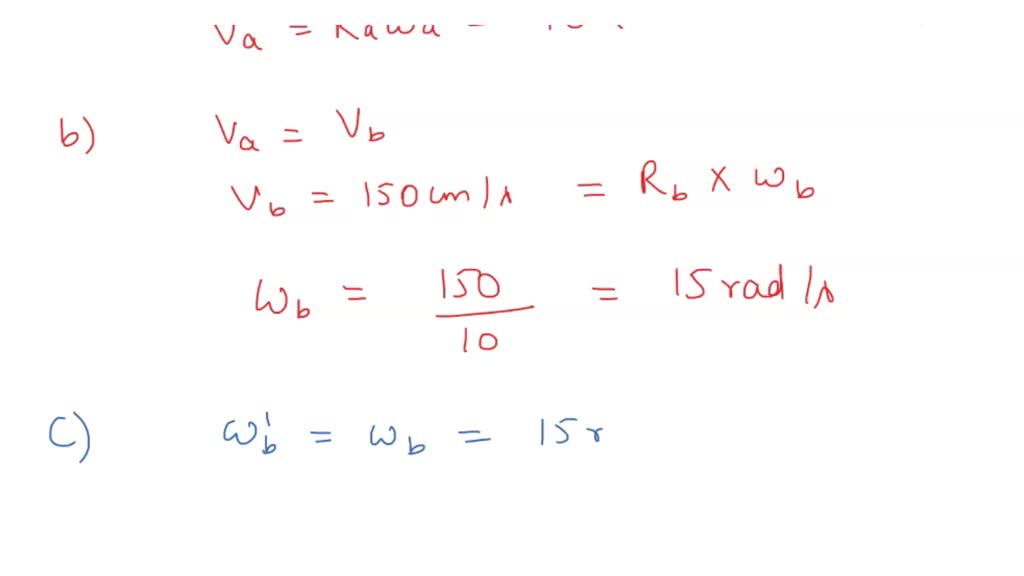 Va = Rawa =
b) Va = Vb
Vb = 150 cm/s = Rb × ωb
ωb = 150/10 = 15 rad/s
c) ωb' = ωb = 15 r